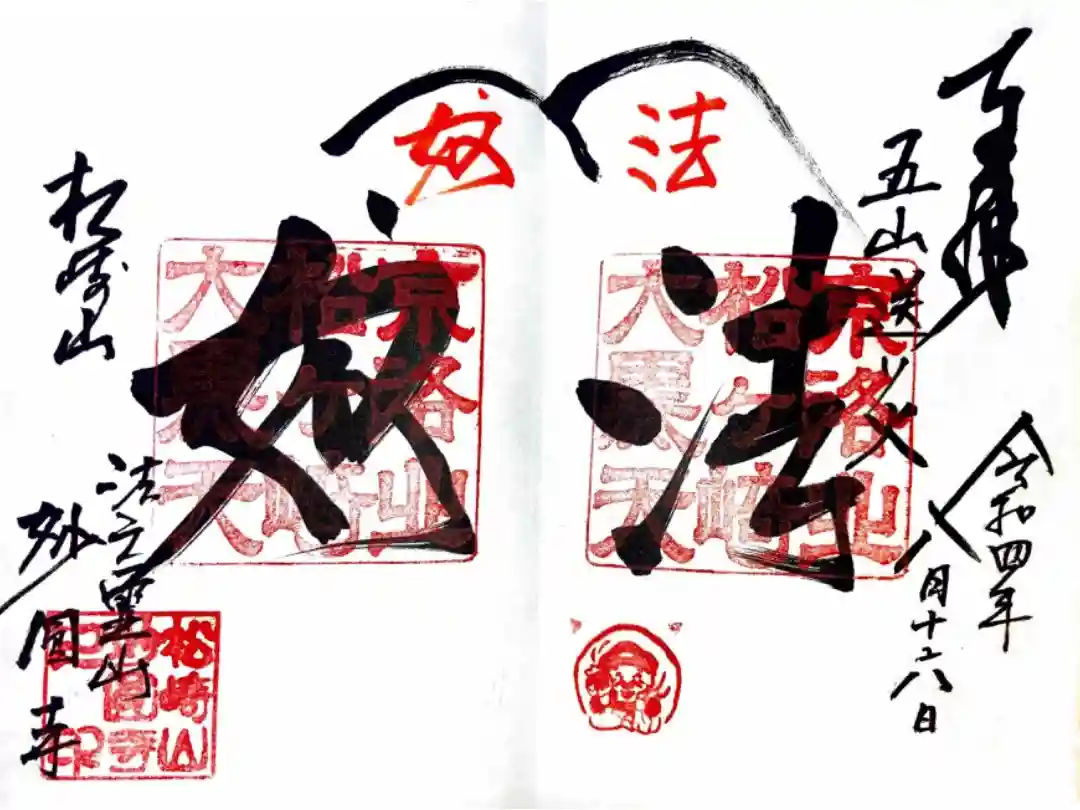 奉拝
五山送火
令和四年
八月十六日
法
妙
法
妙
京洛
松ヶ崎
大黒天
京洛
松ヶ崎
大黒天
松崎山
法之靈山
妙圓寺
松崎山
妙圓寺
印